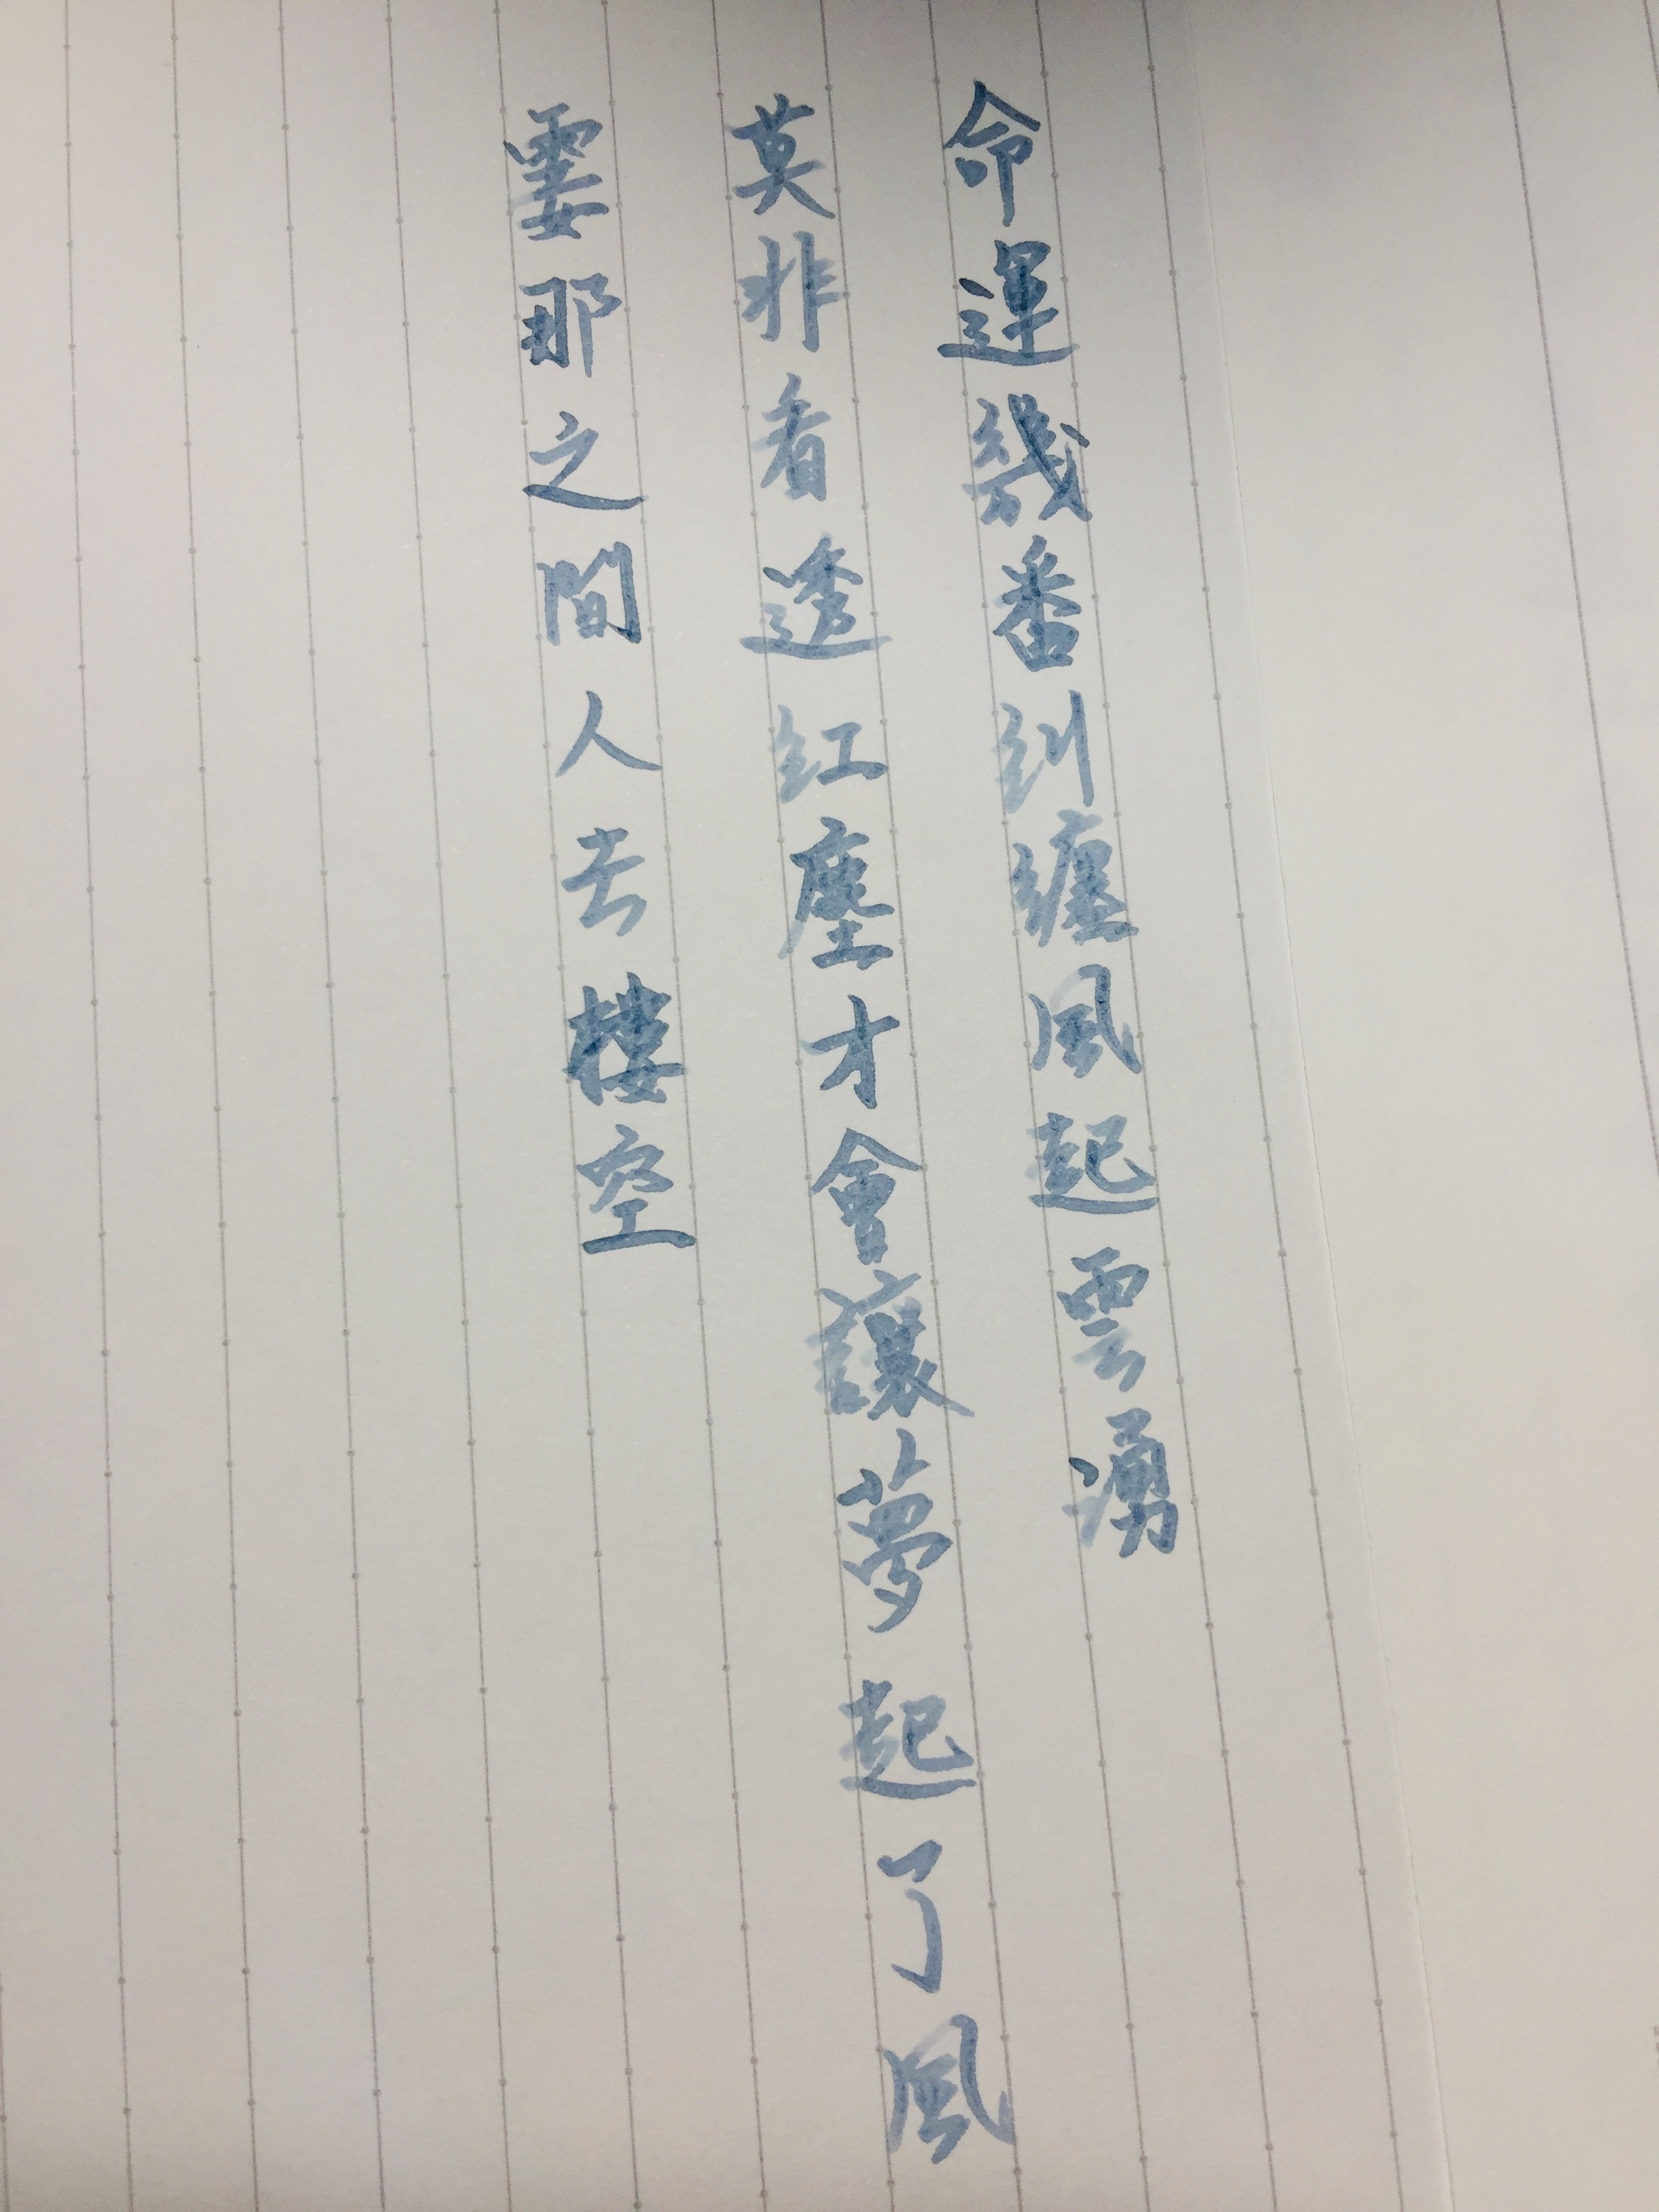 命運幾番糾纏風起雲湧
莫非看透紅塵才會讓夢起了風
霎那之間人去樓空